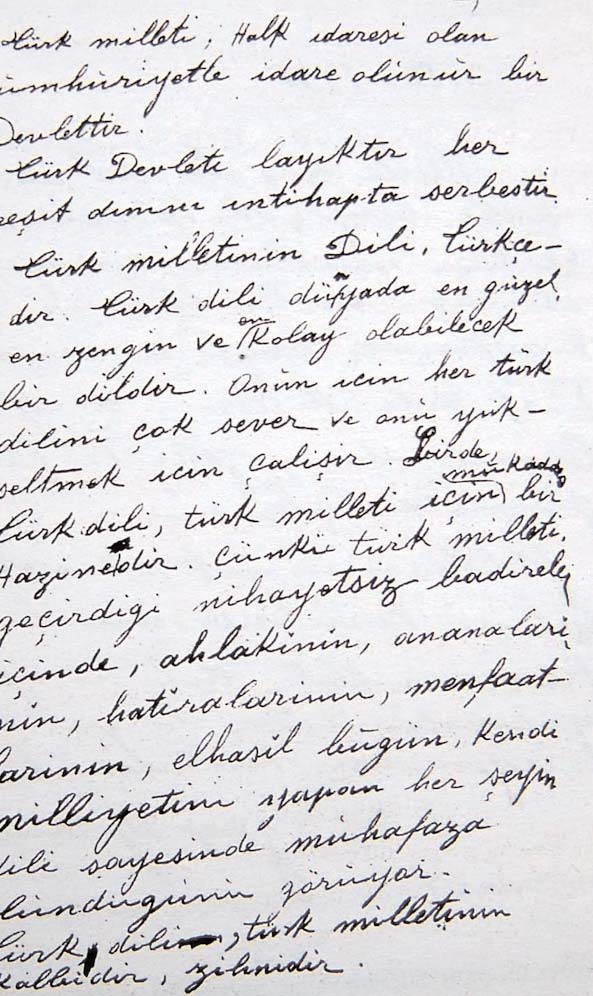 Türk milleti, Halk idaresi olan
ümhuriyetle idare olunur bir
Devlettir.
Türk Devleti layıktır her
eşit dinini intihapta serbestir.
Türk milletinin Dili, türkçe-
dir. Türk dili dünyada en güzel,
en zengin ve en kolay olabilecek
bir dildir. Onun için her türk
dilini çok sever ve onu yük-
seltmek için çalışır. Birde,
Türk dili, türk milleti için mukaddes bir
Hazinedir. çünkü türk milleti,
geçirdigi nihayetsiz badireler
içinde, ahlakinin, ananalari
nin, hatıralarinin, menfaat-
larinin, elhasil bugün, Kendi
milliyetini yapan her şeyin
dili sayesinde muhafaza
lundugunu görüyor.
Türk dili, türk milletinin
Kalbidir, zihnidir.